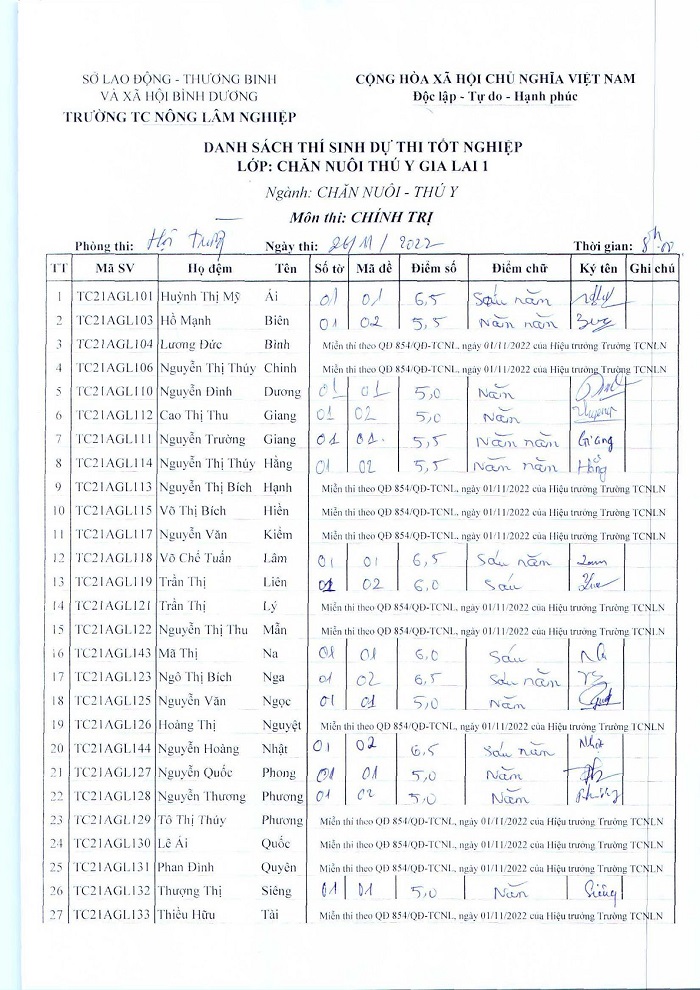 SỞ LAO ĐỘNG - THƯƠNG BINH
VÀ XÃ HỘI BÌNH DƯƠNG
TRƯỜNG TC NÔNG LÂM NGHIỆP
CỘNG HÒA XÃ HỘI CHỦ NGHĨA VIỆT NAM
Độc lập - Tự do - Hạnh phúc
DANH SÁCH THÍ SINH DỰ THI TỐT NGHIỆP
LỚP: CHĂN NUÔI THÚ Y GIA LAI 1
Ngành: CHĂN NUÔI - THÚ Y
Môn thi: CHÍNH TRỊ
Phòng thi: Hội Trường Ngày thi: 26/11/2022 Thời gian: 8h00
TT Mã SV Họ đệm Tên Số tờ Mã đề Điểm số Điểm chữ Ký tên Ghi chú
1 TC21AGL101 Huỳnh Thị Mỹ Ái 01 01 6,5 Sáu năm
2 TC21AGL103 Hồ Mạnh Biên 01 02 5,5 Năm năm
3 TC21AGL104 Lương Đức Bình Miễn thi theo QĐ 854/QĐ-TCNL, ngày 01/11/2022 của Hiệu trưởng Trường TCNLN
4 TC21AGL106 Nguyễn Thị Thúy Chinh Miễn thi theo QĐ 854/QĐ-TCNL, ngày 01/11/2022 của Hiệu trưởng Trường TCNLN
5 TC21AGL110 Nguyễn Đình Dương 01 01 5,0 Năm
6 TC21AGL112 Cao Thị Thu Giang 01 02 5,0 Năm
7 TC21AGL111 Nguyễn Trường Giang 01 01. 5,5 Năm năm Giang
8 TC21AGL114 Nguyễn Thị Thúy Hằng 01 02 5,5 Năm năm Hằng
9 TC21AGL113 Nguyễn Thị Bích Hạnh Miễn thi theo QĐ 854/QĐ-TCNL, ngày 01/11/2022 của Hiệu trưởng Trường TCNLN
10 TC21AGL115 Võ Thị Bích Hiền Miễn thi theo QĐ 854/QĐ-TCNL, ngày 01/11/2022 của Hiệu trưởng Trường TCNLN
11 TC21AGL117 Nguyễn Văn Kiểm Miễn thi theo QĐ 854/QĐ-TCNL, ngày 01/11/2022 của Hiệu trưởng Trường TCNLN
12 TC21AGL118 Võ Chế Tuấn Lâm 01 01 6,5 Sáu năm
13 TC21AGL119 Trần Thị Liên 01 02 6,0 Sáu
14 TC21AGL121 Trần Thị Lý Miễn thi theo QĐ 854/QĐ-TCNL, ngày 01/11/2022 của Hiệu trưởng Trường TCNLN
15 TC21AGL122 Nguyễn Thị Thu Mẫn Miễn thi theo QĐ 854/QĐ-TCNL, ngày 01/11/2022 của Hiệu trưởng Trường TCNLN
16 TC21AGL143 Mã Thị Na 01 01 6,0 Sáu Na
17 TC21AGL123 Ngô Thị Bích Nga 01 02 6,5 Sáu năm
18 TC21AGL125 Nguyễn Văn Ngọc 01 01 5,0 Năm
19 TC21AGL126 Hoàng Thị Nguyệt Miễn thi theo QĐ 854/QĐ-TCNL, ngày 01/11/2022 của Hiệu trưởng Trường TCNLN
20 TC21AGL144 Nguyễn Hoàng Nhật 01 02 6,5 Sáu năm Nhật
21 TC21AGL127 Nguyễn Quốc Phong 01 01 5,0 Năm
22 TC21AGL128 Nguyễn Thương Phương 01 02 5,0 Năm Phương
23 TC21AGL129 Tô Thị Thúy Phương Miễn thi theo QĐ 854/QĐ-TCNL, ngày 01/11/2022 của Hiệu trưởng Trường TCNLN
24 TC21AGL130 Lê Ái Quốc Miễn thi theo QĐ 854/QĐ-TCNL, ngày 01/11/2022 của Hiệu trưởng Trường TCNLN
25 TC21AGL131 Phan Đình Quyên Miễn thi theo QĐ 854/QĐ-TCNL, ngày 01/11/2022 của Hiệu trưởng Trường TCNLN
26 TC21AGL132 Thượng Thị Siêng 01 01 5,0 Năm Siêng
27 TC21AGL133 Thiều Hữu Tài Miễn thi theo QĐ 854/QĐ-TCNL, ngày 01/11/2022 của Hiệu trưởng Trường TCNLN